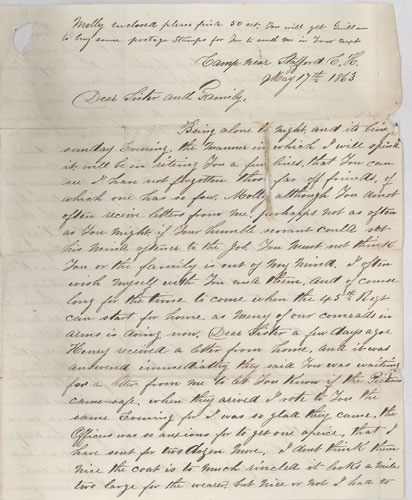 Molly enclosed please find 50 cct. You will get William
to buy some postage stamps for You to send me in Your next
Camp near Stafford C. H.
May 17th 1863
Dear Sister and Family.
Being alone to night and its being
sunday Evening, the manner in which I will spend
it will be in riteing You a few lines, that You can
see I have not forgotten those far off friends, of
which one has so few. Molly although You donot
often receive letters from me, perhapps not as often
as You might, if Your humble servant could set
his mind oftener to the job. You must not think
You or the family is out of My mind. I often
wish myself with You and them, and of course
long for the time to come when the 45th Regt
can start for home, as meny of our comrades in
arms is doing now. Dear Sister a few days agoe
Henry received a letter from home, and it was
answered immediatly they said You was waiting
for a letter from me to let You know if the
came safe, when they arived I rote to You the
same Evening for I was so glad they came, the
Officers was so anxious for to get one apeice, that I
have sent for two dozen more. I dont think them
nice the coat is to much rincled it looks a mile
two large for the wearer, but nice or not I had to